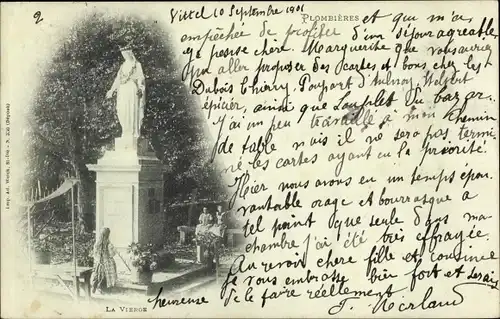 2
Vittel 10 Septembre 1901
PLOMBIÈRES
et qui m'a
empêchée de profiter d'un séjour agréable
je pense chère Marguerite que vous aurez
qu'aller proposer des cartes et bons chez les
Dubois Thierry, Poupart d'Aulnoy
épicier, ainsi que Louplet du bazar.
J'ai un peu travaillé à mon chemin
de table mais il ne sera pas termi
né les cartes ayant eu la priorité.
Hier nous avons eu un temps épou
vantable orage et bourrasque à
tel point que seule dans ma
chambre j'ai été très effrayée.
Au revoir chère fille et cousine
je vous embrasse bien fort et serais
heureuse de le faire réellement
LA VIERGE
Imp. Ad. Weick, St-Dié